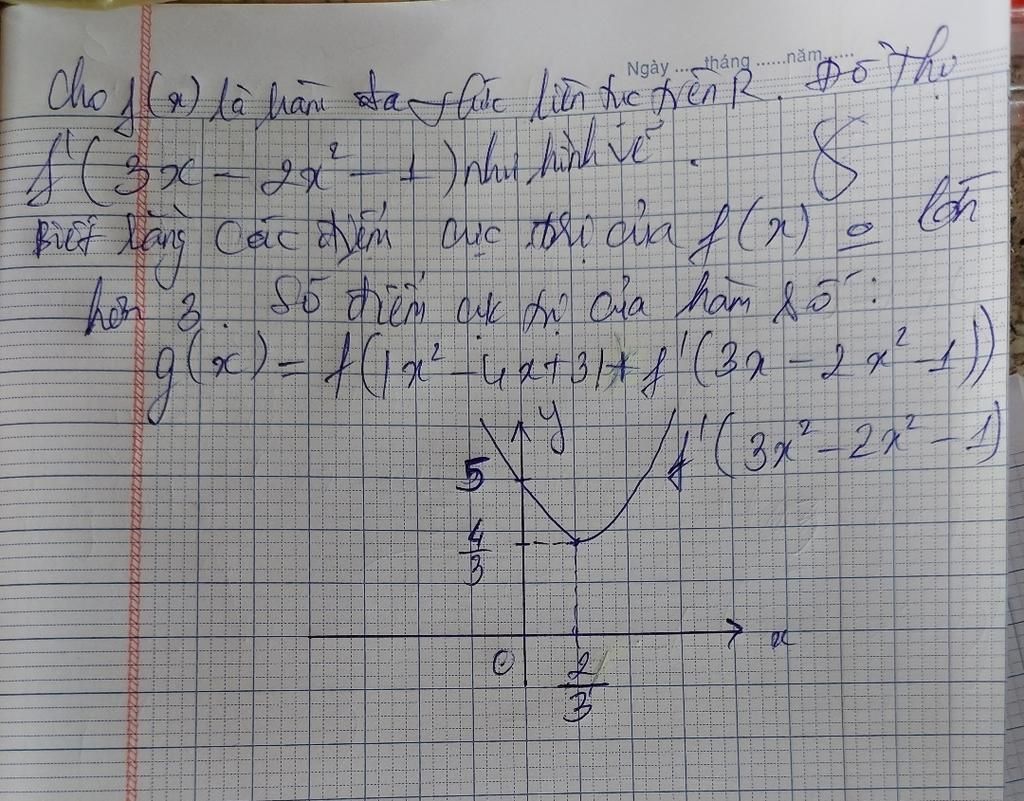 Ngày .....tháng ......năm......
Cho f(x) là hàm đa thức liên tục trên R. Đồ thị
f'(3x - 2x² - 1) như hình vẽ. 8
Biết rằng các điểm cực trị của f(x) lớn
hơn 3. Số điểm cực trị của hàm số:
g(x) = f(|x² - 4x + 3| + f'(3x - 2x² - 1))
y
f'(3x² - 2x² - 1)
5
4/3
x
O
2/3